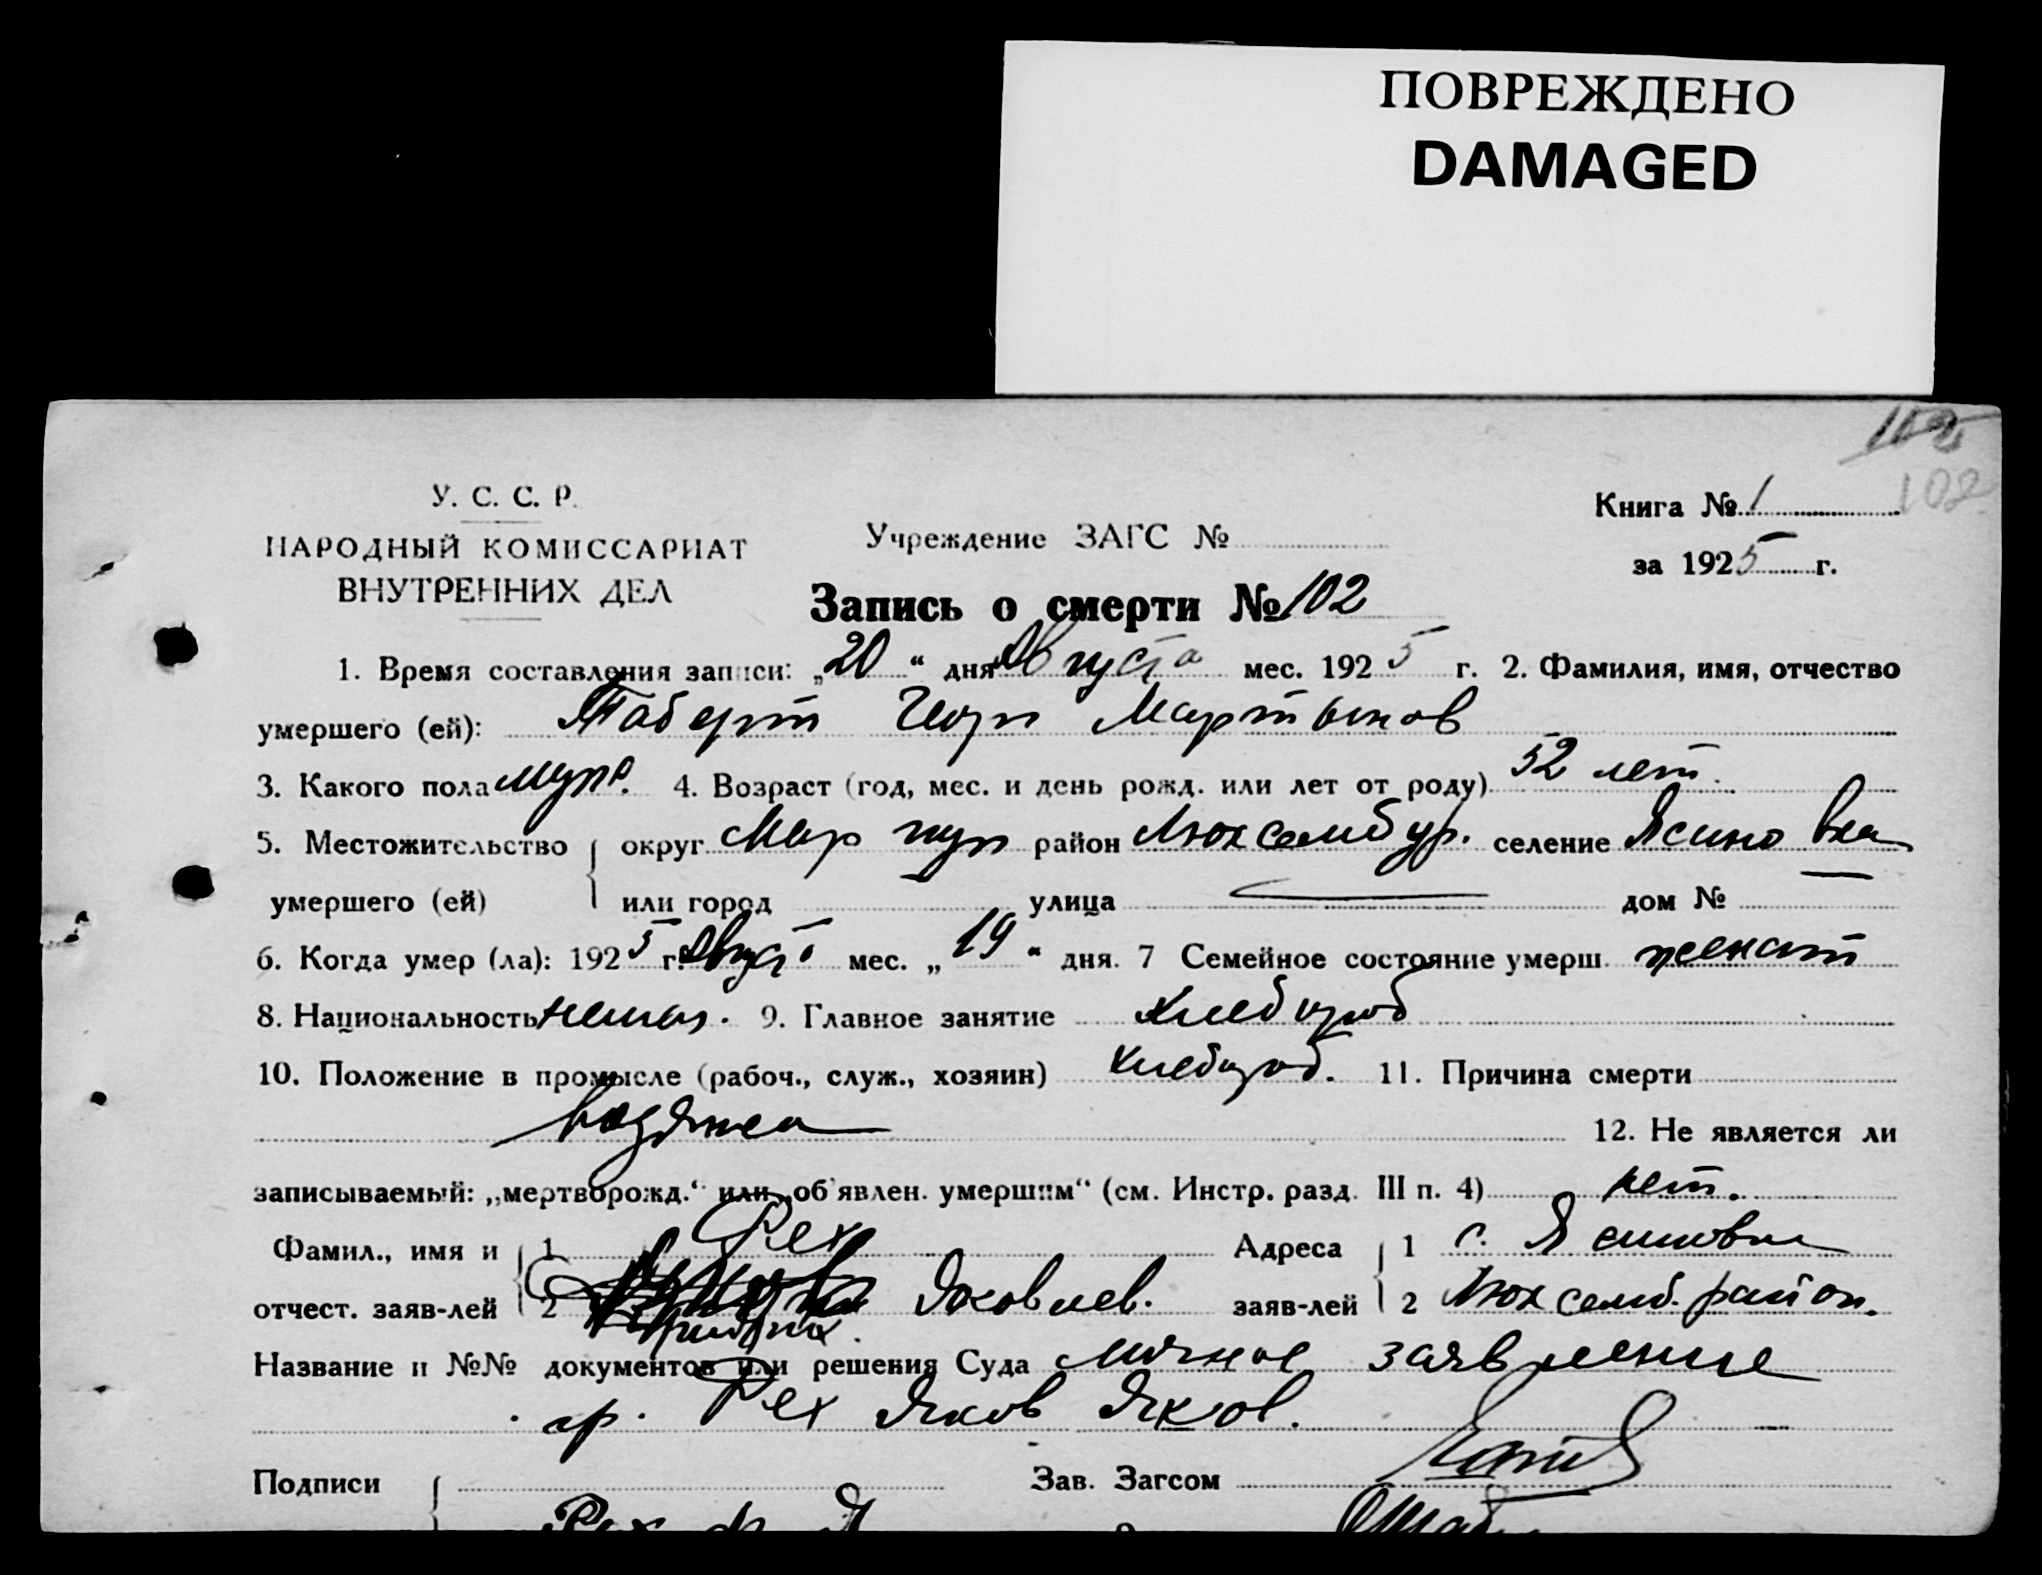 ПОВРЕЖДЕНО
DAMAGED
102
102
У. С. С. Р.
НАРОДНЫЙ КОМИССАРИАТ
ВНУТРЕННИХ ДЕЛ
Учреждение ЗАГС №
Книга № 1
за 1925 г.
Запись о смерти № 102
1. Время составления записи: „20“ дня Августа мес. 1925 г. 2. Фамилия, имя, отчество
умершего (ей): Таберт Георг Мартынов
3. Какого пола муж. 4. Возраст (год, мес. и день рожд. или лет от роду) 52 лет.
5. Местожительство округ Мариуп район Люксембур. селение Ясиновка
умершего (ей) или город улица — дом № —
6. Когда умер (ла): 1925 г. Август мес. „19“ дня. 7 Семейное состояние умерш. женат
8. Национальность немец. 9. Главное занятие хлебороб
10. Положение в промысле (рабоч., служ., хозяин) хлебороб. 11. Причина смерти
водянка
12. Не является ли
записываемый: „мертворожд.“ или „об'явлен. умершим“ (см. Инстр. разд. III п. 4) нет.
Фамил., имя и 1 Рех Адреса 1 с. Ясиновка
отчест. заяв-лей 2 Яковлев. заяв-лей 2 Люксемб. район.
Название и №№ документов или решения Суда личное заявление
гр. Рех Яков Яковл.
Подписи Зав. Загсом
Рех